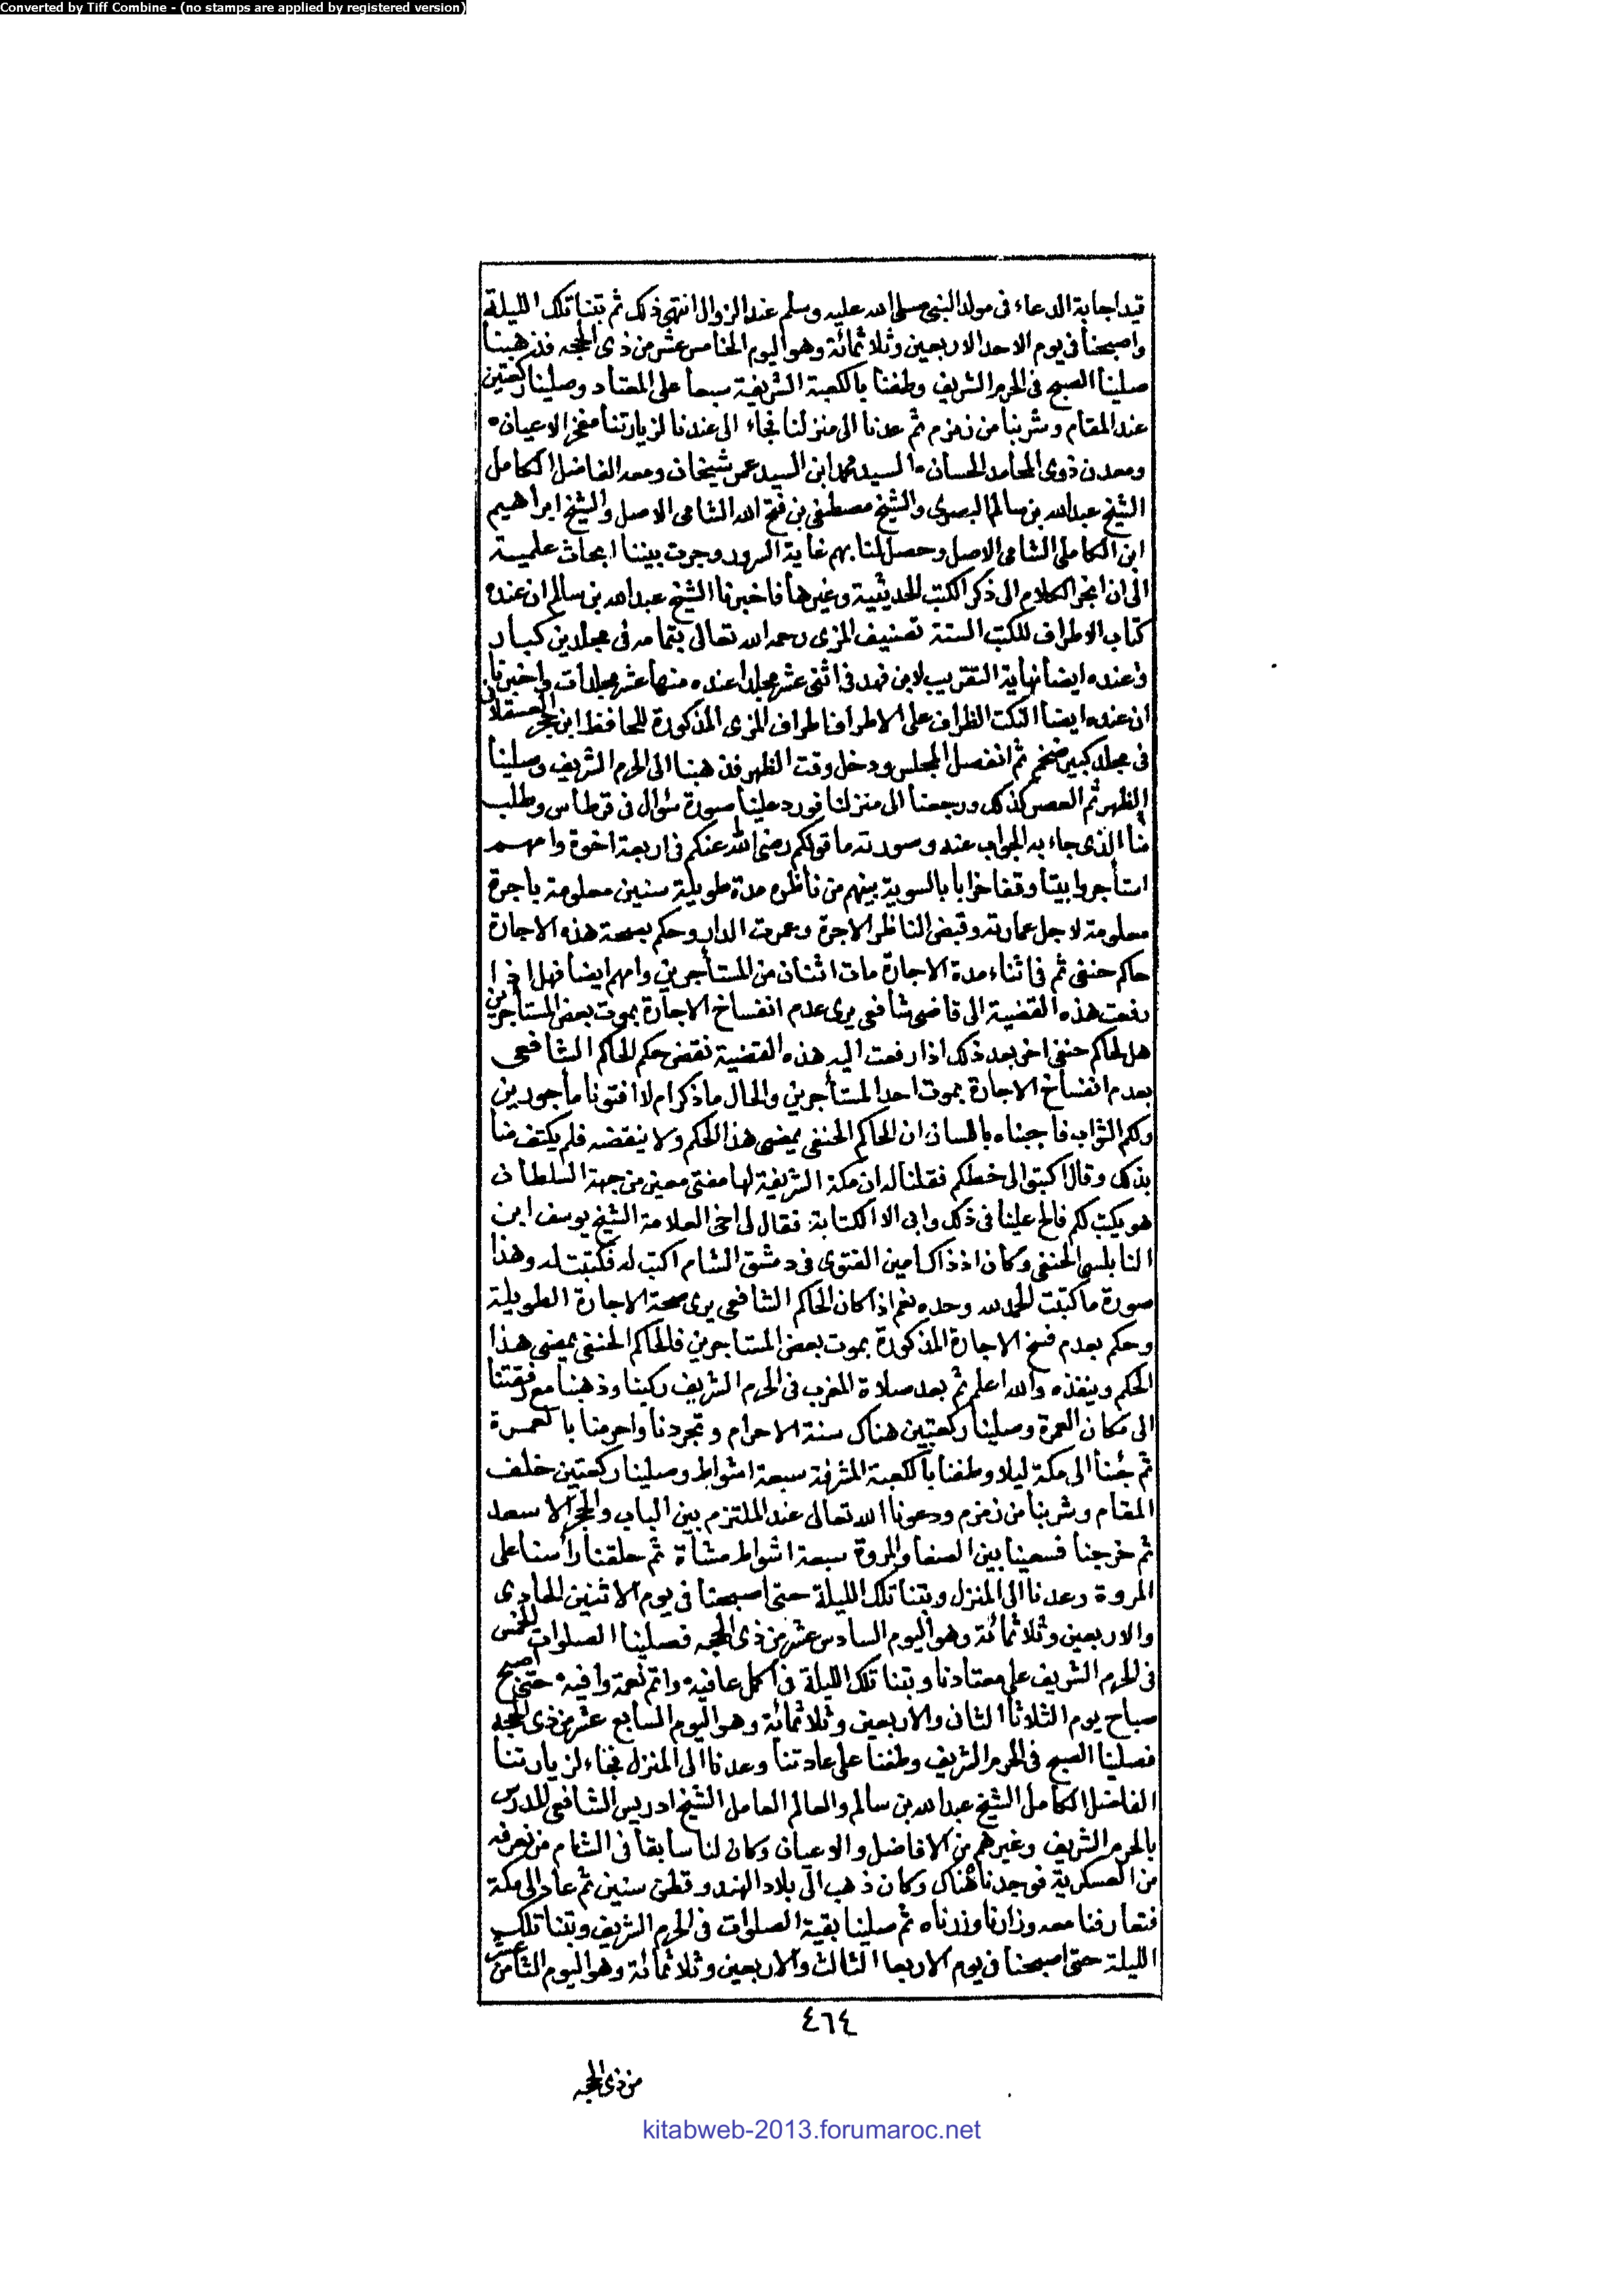 Converted by Tiff Combine - (no stamps are applied by registered version)
قيد اجابة الدعاء فى مولد النبى صلى الله عليه وسلم عند الزوال انتهى ذلك ثم بتنا تلك الليلة
واصبحنا فى يوم الاحد الاربعين وثلاثمائة وهو اليوم الخامس عشر من ذى الحجه فذهبنا
صلينا الصبح فى الحرم الشريف وطفنا بالكعبة الشريفة سبعا على المعتاد وصلينا ركعتين
عند المقام وشربنا من زمزم ثم عدنا الى منزلنا فجاء الى عندنا لزيارتنا مفخر الاعيان
ومعدن ذوى المحامد الحسان السيد محمد ابن السيد عمر شيخان ومعه الفاضل الكامل
الشيخ عبدالله بن سالم البصرى والشيخ مصطفى بن فتح الله الشامى الاصل والشيخ ابراهيم
ابن الكاملى الشامى الاصل وحصل لنا بهم غاية السرور وجرت بيننا ابحاث علمية
الى ان انجر الكلام الى ذكر الكتب الحديثية وغيرها فاخبرنا الشيخ عبدالله بن سالم ان عنده
كتاب الاطراف للكتب الستة تصنيف المزى رحمه الله تعالى بتمامه فى مجلدين كبار
وعنده ايضا نهاية التقريب لابن فهد فى اثنى عشر مجلدا عنده منها عشر مجلدات واخبرنا
ان عنده ايضا النكت الظراف على الاطراف اطراف المزى المذكورة للحافظ ابن حجر العسقلانى
فى مجلد كبير ضخم ثم انفصل المجلس ودخل وقت الظهر فذهبنا الى الحرم الشريف وصلينا
الظهر ثم العصر كذلك ورجعنا الى منزلنا فورد علينا صورة سؤال فى قرطاس وطلب
منا الذى جاء به الجواب عنه وصورته ما قولكم رضى الله عنكم فى اربعة اخوة وامهم
استأجروا بيتا وقفا خرابا بالسوية بينهم من ناظره مدة طويلة سنين معلومة باجرة
معلومة لاجل عمارته وقبض الناظر الاجرة وعمرت الدار وحكم بصحة هذه الاجارة
حاكم حنفى ثم فى اثناء مدة الاجارة مات اثنان من المستأجرين وامهم ايضا فهل اذا
رفعت هذه القضية الى قاضى شافعى يرى عدم انفساخ الاجارة بموت بعض المستأجرين
هل لحاكم حنفى اخر بعد ذلك اذا رفعت اليه هذه القضية نقض حكم الحاكم الشافعى
بعدم انفساخ الاجارة بموت احد المستأجرين والحال ما ذكر ام لا افتونا مأجورين
ولكم الثواب فاجبناه باللسان ان الحاكم الحنفى يمضى هذا الحكم ولا ينقضه فلم يكتف منا
بذلك وقال اكتبوا لى خطكم فقلنا له ان مكة الشريفة لها مفتى معين من جهة السلطان
هو يكتب لكم فالح علينا فى ذلك وابى الا الكتابة فقال لى اخى العلامة الشيخ يوسف ابن
النابلسى الحنفى وكان اذ ذاك امين الفتوى فى دمشق الشام اكتب له فكتبت له وهذا
صورة ما كتبت الحمد لله وحده نعم اذا كان الحاكم الشافعى يرى صحة الاجارة الطويلة
وحكم بعدم فسخ الاجارة المذكورة بموت بعض المستأجرين فالحاكم الحنفى يمضى هذا
الحكم وينفذه والله اعلم ثم بعد صلاة المغرب فى الحرم الشريف ركبنا وذهبنا مع رفقتنا
الى مكان العمرة وصلينا ركعتين هناك سنة الاحرام وتجردنا واحرمنا بالعمرة
ثم جئنا الى مكة ليلا وطفنا بالكعبة المشرفة سبعة اشواط وصلينا ركعتين خلف
المقام وشربنا من زمزم ودعونا الله تعالى عند الملتزم بين الباب والحجر الاسعد
ثم خرجنا فسعينا بين الصفا والمروة سبعة اشواط مشأة ثم حلقنا رأسنا على
المروة وعدنا الى المنزل وبتنا تلك الليلة حتى اصبحنا فى يوم الاثنين الحادى
والاربعين وثلاثمائة وهو اليوم السادس عشر من ذى الحجه فصلينا الصلوات الخمس
فى الحرم الشريف على معتادنا وبتنا تلك الليلة فى اكمل عافيه واتم نعمة وافيه حتى اصبح
صباح يوم الثلاثا الثانى والاربعين وثلاثمائة وهو اليوم السابع عشر من ذى الحجه
فصلينا الصبح فى الحرم الشريف وطفنا على عادتنا وعدنا الى المنزل فجاء لزيارتنا
الفاضل الكامل الشيخ عبدالله بن سالم والعالم العامل الشيخ ادريس الشافعى المدرس
بالحرم الشريف وغيرهم من الافاضل والاعيان وكان لنا سابقا فى الشام من نعرفه
من العسكرية فوجدناه هناك وكان ذهب الى بلاد الهند وقطن سنين ثم عاد الى مكة
فتعارفنا معه وزارنا وزرناه ثم صلينا بقية الصلوات فى الحرم الشريف وبتنا تلك
الليلة حتى اصبحنا فى يوم الاربعا الثالث والاربعين وثلاثمائة وهو اليوم الثامن عشر
٤٦٤
من ذى الحجه
kitabweb-2013.forumaroc.net